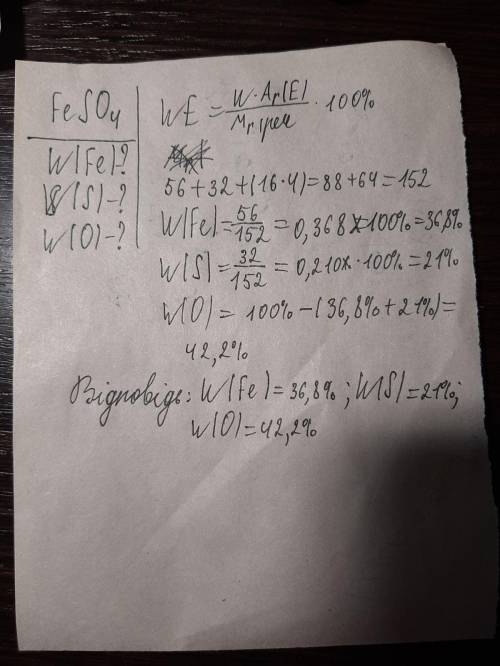 FeSO₄
W(Fe)?
W(S)-?
W(O)-?
WE = W·Ar(E) / Mr реч · 100%
56+32+(16·4)=88+64=152
W(Fe)= 56/152 = 0,368 × 100% = 36,8%
W(S)= 32/152 = 0,210 · 100% = 21%
W(O) = 100% - (36,8% + 21%) =
42,2%
Відповідь: W(Fe)=36,8%; W(S)=21%;
W(O)=42,2%